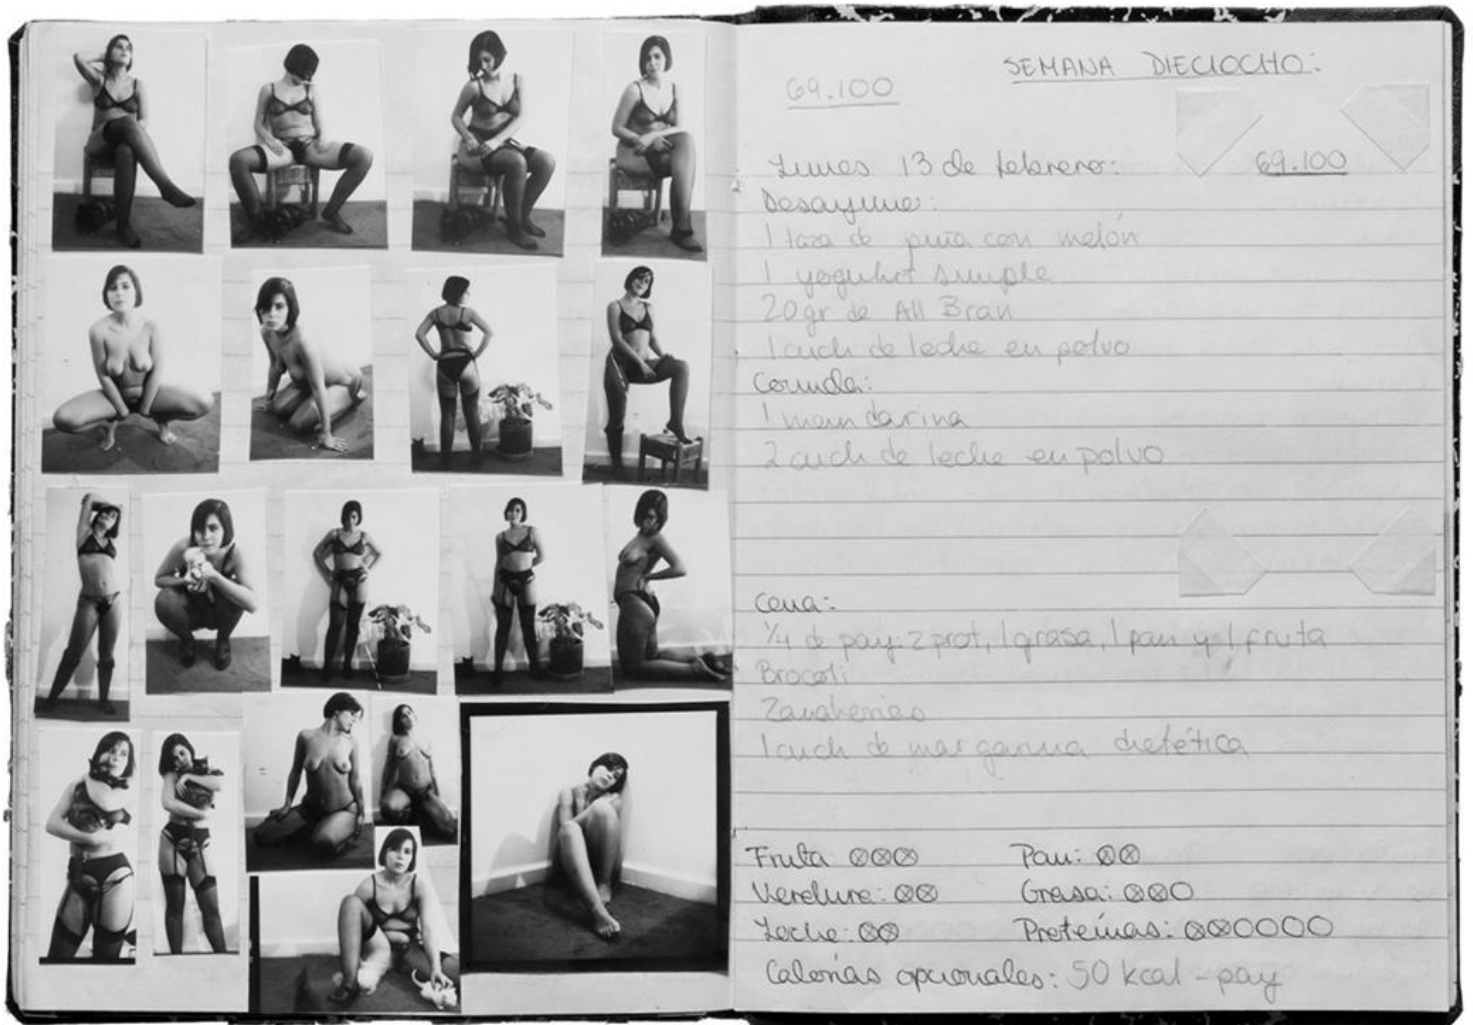 SEMANA DIECIOCHO:
69.100
Lunes 13 de febrero: 69.100
Desayuno:
1 taza de piña con melón
1 yoghurt simple
20gr de All Bran
1 cuch de leche en polvo
Comida:
1 mandarina
2 cuch de leche en polvo
Cena:
1/4 de pay: 2 prot, 1 grasa, 1 pan y 1 fruta
Brocoli
Zanahorias
1 cuch de margarina dietética
Fruta: Pan:
Verdura: Grasa:
Leche: Proteínas:
Calorías opcionales: 50 kcal - pay